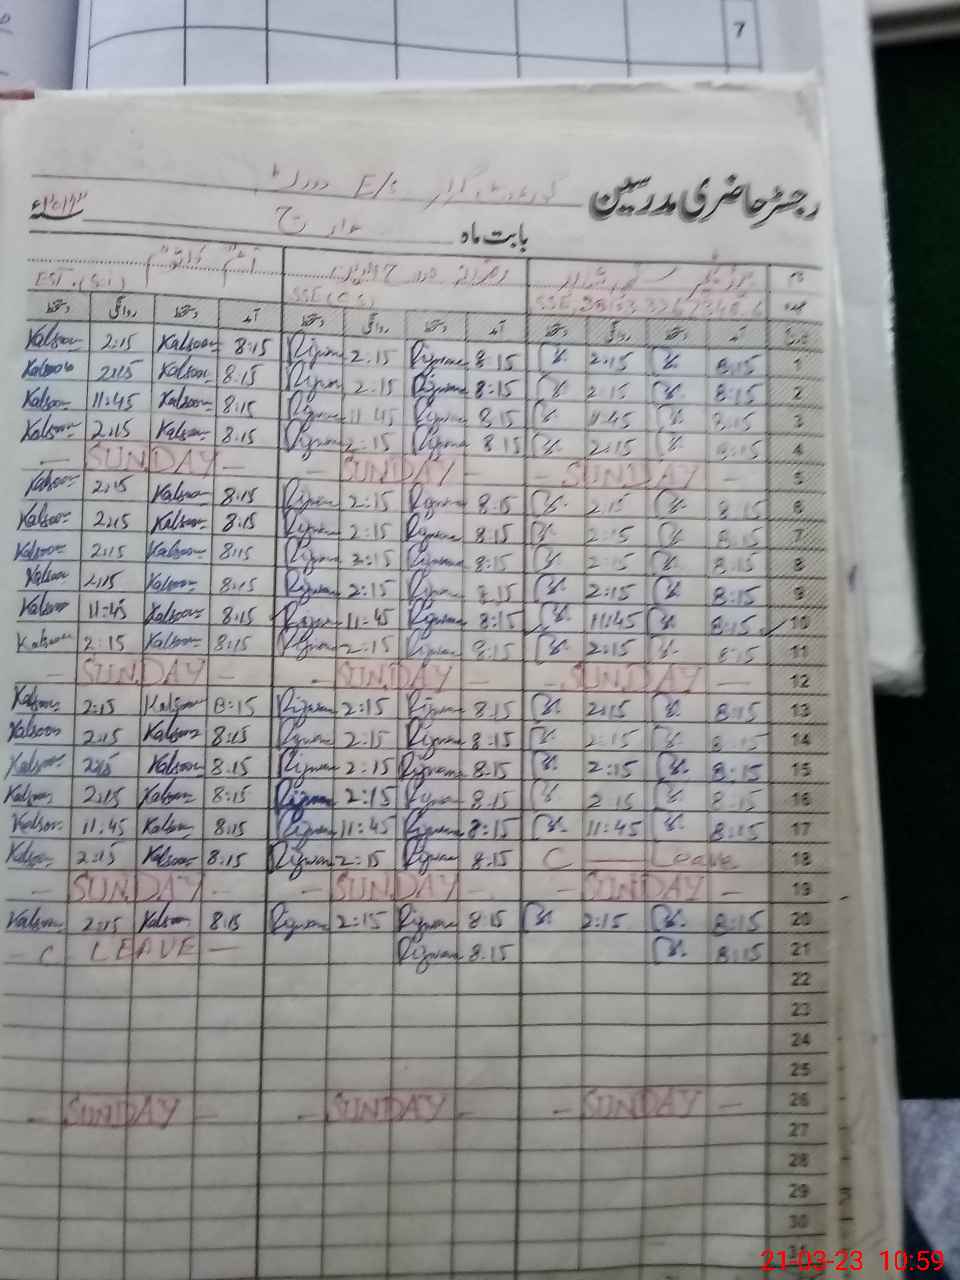 7
رجسٹر حاضری مدرسین E/S
بابت ماہ مارچ ۲۰۲۳ء
نام
عہدہ SSE SSE(CS) EST.(Sci)
تاریخ آمد دستخط روانگی دستخط آمد دستخط روانگی دستخط آمد دستخط روانگی دستخط
Kalsoom 2:15 Kalsoom 8:15 Rizwan 2:15 Rizwan 8:15 2:15 8:15 1
Kalsoom 2:15 Kalsoom 8:15 Rizwan 2:15 Rizwan 8:15 2:15 8:15 2
Kalsoom 11:45 Kalsoom 8:15 Rizwan 11:45 Rizwan 8:15 11:45 8:15 3
Kalsoom 2:15 Kalsoom 8:15 Rizwan 2:15 Rizwan 8:15 2:15 8:15 4
— SUNDAY — - SUNDAY — - SUNDAY — 5
Kalsoom 2:15 Kalsoom 8:15 Rizwan 2:15 Rizwan 8:15 2:15 8:15 6
Kalsoom 2:15 Kalsoom 8:15 Rizwan 2:15 Rizwan 8:15 2:15 8:15 7
Kalsoom 2:15 Kalsoom 8:15 Rizwan 2:15 Rizwan 8:15 2:15 8:15 8
Kalsoom 2:15 Kalsoom 8:15 Rizwan 2:15 Rizwan 8:15 2:15 8:15 9
Kalsoom 11:45 Kalsoom 8:15 Rizwan 11:45 Rizwan 8:15 11:45 8:15 10
Kalsoom 2:15 Kalsoom 8:15 Rizwan 2:15 Rizwan 8:15 2:15 8:15 11
— SUNDAY — - SUNDAY — - SUNDAY — 12
Kalsoom 2:15 Kalsoom 8:15 Rizwan 2:15 Rizwan 8:15 2:15 8:15 13
Kalsoom 2:15 Kalsoom 8:15 Rizwan 2:15 Rizwan 8:15 2:15 8:15 14
Kalsoom 2:15 Kalsoom 8:15 Rizwan 2:15 Rizwan 8:15 2:15 8:15 15
Kalsoom 2:15 Kalsoom 8:15 Rizwan 2:15 Rizwan 8:15 2:15 8:15 16
Kalsoom 11:45 Kalsoom 8:15 Rizwan 11:45 Rizwan 8:15 11:45 8:15 17
Kalsoom 2:15 Kalsoom 8:15 Rizwan 2:15 Rizwan 8:15 C — Leave 18
— SUNDAY — - SUNDAY — - SUNDAY — 19
Kalsoom 2:15 Kalsoom 8:15 Rizwan 2:15 Rizwan 8:15 2:15 8:15 20
— C LEAVE — Rizwan 8:15 8:15 21
22
23
24
25
— SUNDAY — - SUNDAY — - SUNDAY — 26
27
28
29
30
31
21-03-23 10:59